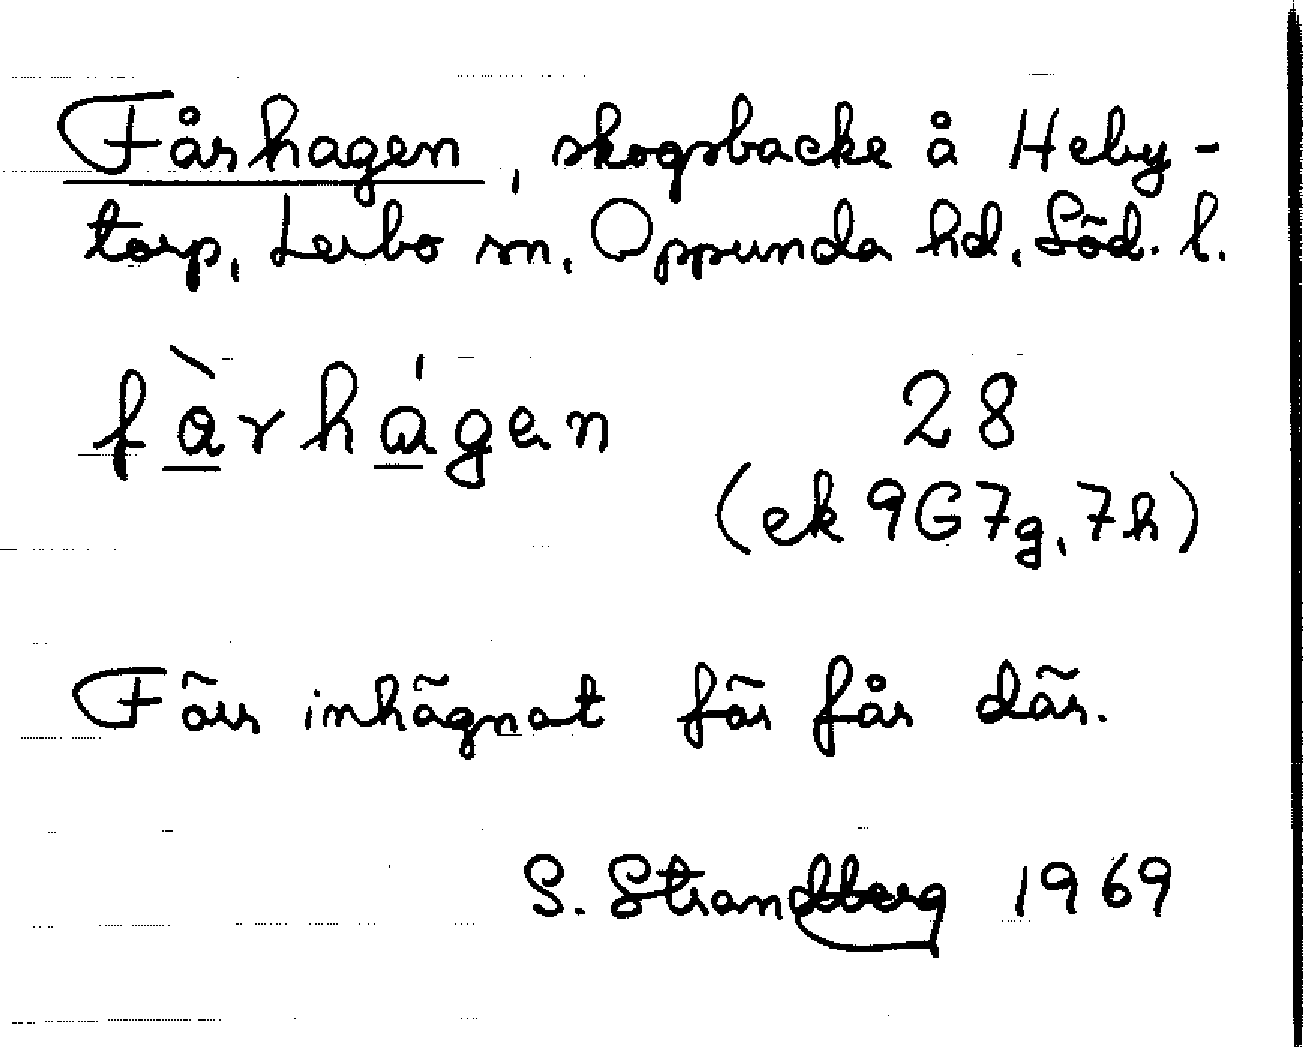 Fårhagen, skogsbacke å Heby-
torp, Lerbo sn, Oppunda hd, Söd. l.
fàrhágen 28
(ek 9G7g, 7h)
Förr inhägnat för får där.
S. Strandberg 1969